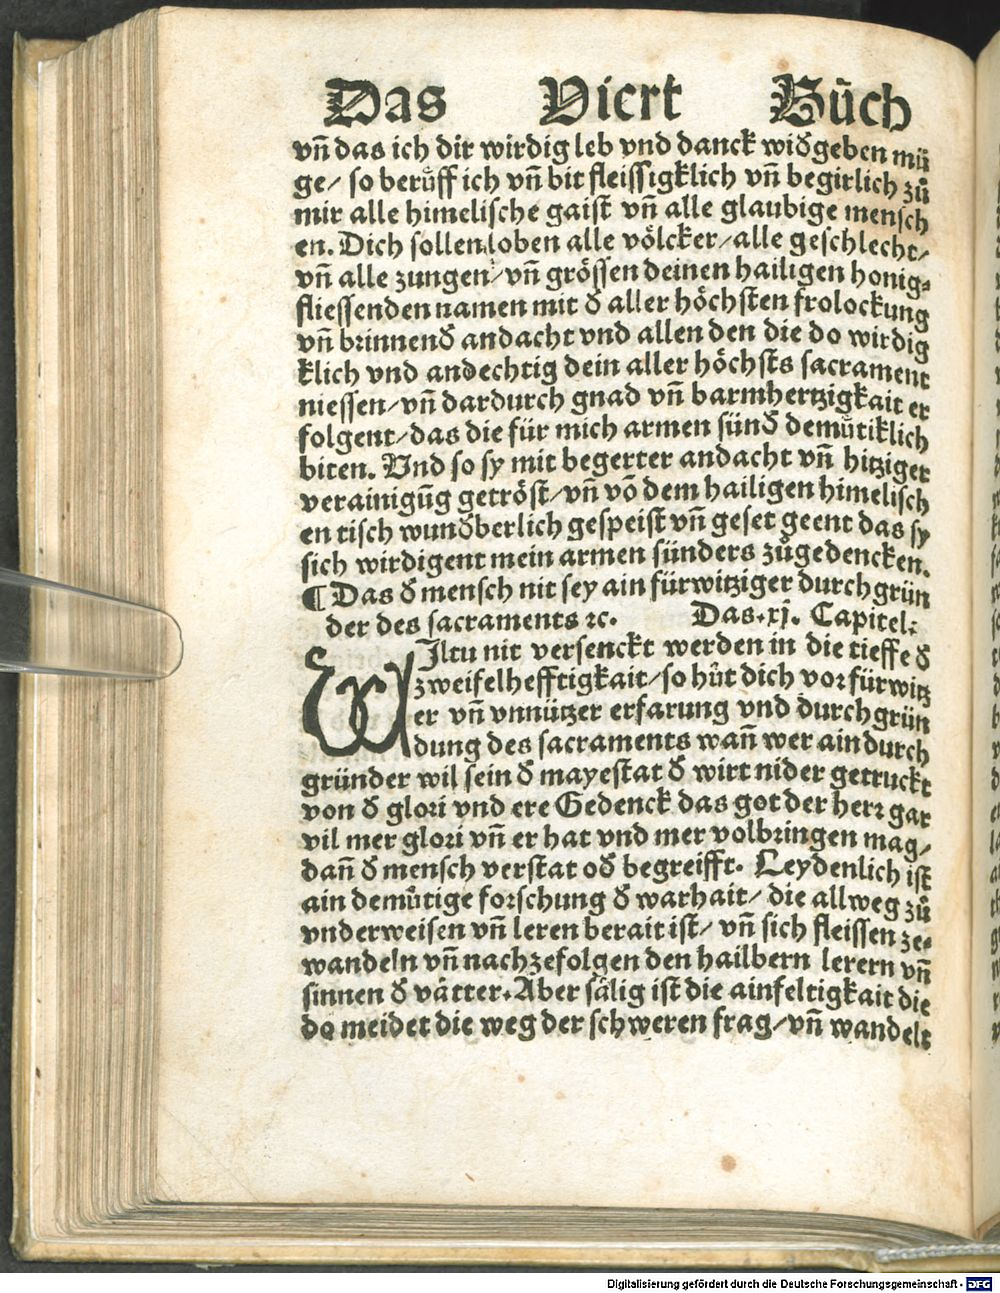 Das Viert Bůch
vñ das ich dir wirdig leb vnd danck wiðgeben mü
ge/ so berůff ich vñ bit fleissigklich vñ begirlich zů
mir alle himelische gaist vñ alle glaubige mensch
en. Dich sollen loben alle völcker/alle geschlecht/
vñ alle zungen/vñ grössen deinen hailigen honig⸗
fliessenden namen mit ð aller höchsten frolockung
vñ brinnenð andacht vnd allen den die do wirdig
klich vnd andechtig dein aller höchsts sacrament
niessen/vñ dardurch gnad vñ barmhertzigkait er
folgent/das die für mich armen sünð demůtiklich
biten. Vnd so sy mit begerter andacht vñ hitziger
verainigũg getröst/vñ võ dem hailigen himelisch
en tisch wunðberlich gespeist vñ geset geent das sy
sich wirdigent mein armen sünders zůgedencken.
¶ Das ð mensch nit sey ain fürwitziger durchgrün
der des sacraments ꝛc. Das.xj. Capitel:
WIltu nit versenckt werden in die tieffe ð
zweifelhefftigkait/so hůt dich vor fürwitz
er vñ vnnützer erfarung vnd durchgrün
dung des sacraments wañ wer ain durch
gründer wil sein ð mayestat ð wirt nider getruckt
von ð glori vnd ere Gedenck das got der herr gar
vil mer glori vñ er hat vnd mer volbringen mag/
dañ ð mensch verstat oð begreifft. Leydenlich ist
ain demůtige forschung ð warhait/ die allweg zů
vnderweisen vñ leren berait ist/ vñ sich fleissen ze⸗
wandeln vñ nachzefolgen den hailbern lerern vñ
sinnen ð vätter. Aber sälig ist die ainfeltigkait die
do meidet die weg der schweren frag/vñ wandelt
Digitalisierung gefördert durch die Deutsche Forschungsgemeinschaft - DFG